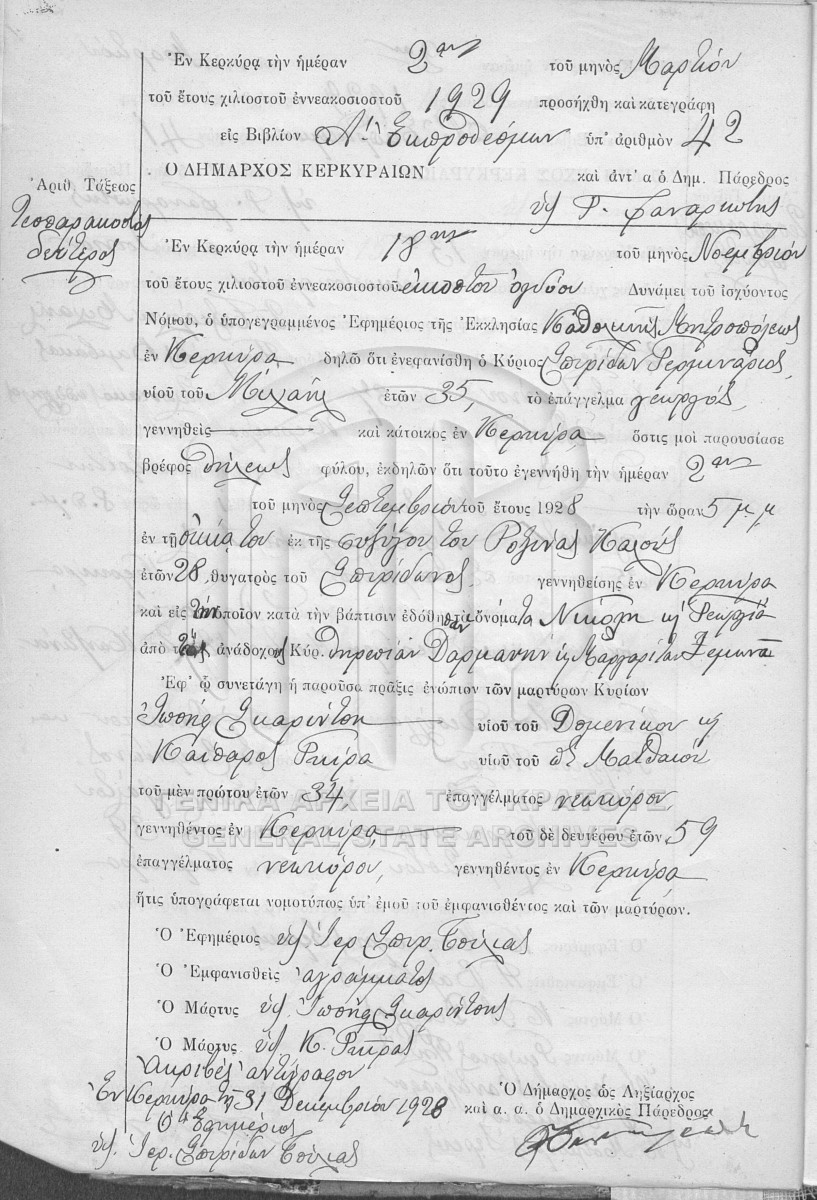 Ἐν Κερκύρᾳ τὴν ἡμέραν 2αν τοῦ μηνὸς Μαρτίου
τοῦ ἔτους χιλιοστοῦ ἐννεακοσιοστοῦ 1929 προσήχθη καὶ κατεγράφη
εἰς Βιβλίον Λ. Ἐκπροθέσμων ὑπ' ἀριθμὸν 42
Ο ΔΗΜΑΡΧΟΣ ΚΕΡΚΥΡΑΙΩΝ καὶ ἀντ' α ὁ Δημ. Πάρεδρος
Ἀριθ Τάξεως
Τεσσαρακοστὸς
δεύτερος
Ἐν Κερκύρᾳ τὴν ἡμέραν 18ην τοῦ μηνὸς Νοεμβρίου
τοῦ ἔτους χιλιοστοῦ ἐννεακοσιοστοῦ εἰκοστοῦ ὀγδόου Δυνάμει τοῦ ἰσχύοντος
Νόμου, ὁ ὑπογεγραμμένος Ἐφημέριος τῆς Ἐκκλησίας Καθολικῆς Μητροπόλεως
ἐν Κερκύρᾳ δηλῶ ὅτι ἐνεφανίσθη ὁ Κύριος Σπυρίδων
υἱοῦ τοῦ Μιχαὴλ ἐτῶν 35, τὸ ἐπάγγελμα γεωργός,
γεννηθεὶς καὶ κάτοικος ἐν Κερκύρᾳ ὅστις μοὶ παρουσίασε
βρέφος θήλεως φύλου, ἐκδηλῶν ὅτι τοῦτο ἐγεννήθη τὴν ἡμέραν 2αν
τοῦ μηνὸς Σεπτεμβρίου τοῦ ἔτους 1928 τὴν ὥραν 5 μ.μ,
ἐν τῇ οἰκίᾳ του ἐκ τῆς συζύγου του Ροζίνας
ἐτῶν 28, θυγατρὸς τοῦ Σπυρίδωνος, γεννηθείσης ἐν Κερκύρᾳ
καὶ εἰς τὴν ὁποῖον κατὰ τὴν βάπτισιν ἐδόθη τὰ ὀνόματα
ἀπὸ τοὺς ἀνάδοχους Κύρ.
Ἐφ' ᾧ συνετάγη ἡ παροῦσα πρᾶξις ἐνώπιον τῶν μαρτύρων Κυρίων
Ἰωσὴφ Σκαρίντση υἱοῦ τοῦ Δομενίκου
υἱοῦ τοῦ Ματθαίου
τοῦ μὲν πρώτου ἐτῶν 34, ἐπαγγέλματος νεωκόρου
ΓΕΝΙΚΑ ΑΡΧΕΙΑ ΤΟΥ ΚΡΑΤΟΥΣ
γεννηθέντος ἐν Κερκύρᾳ, τοῦ δὲ δευτέρου ἐτῶν 59
GENERAL STATE ARCHIVES
ἐπαγγέλματος νεωκόρου, γεννηθέντος ἐν Κερκύρᾳ,
ἥτις ὑπογράφεται νομοτύπως ὑπ' ἐμοῦ τοῦ ἐμφανισθέντος καὶ τῶν μαρτύρων.
Ὁ Ἐφημέριος Ἱερ. Σπυρ.
Ὁ Ἐμφανισθεὶς ἀγράμματος
Ὁ Μάρτυς Ἰωσὴφ Σκαρίντσης
Ὁ Μάρτυς Κ.
Ἀκριβὲς ἀντίγραφον
Ἐν Κερκύρᾳ τῇ 31 Δεκεμβρίου 1928
Ὁ Ἐφημέριος
Ἱερ. Σπυρίδων
Ὁ Δήμαρχος ὡς Ληξίαρχος
καὶ α. α. ὁ Δημαρχικὸς Πάρεδρος